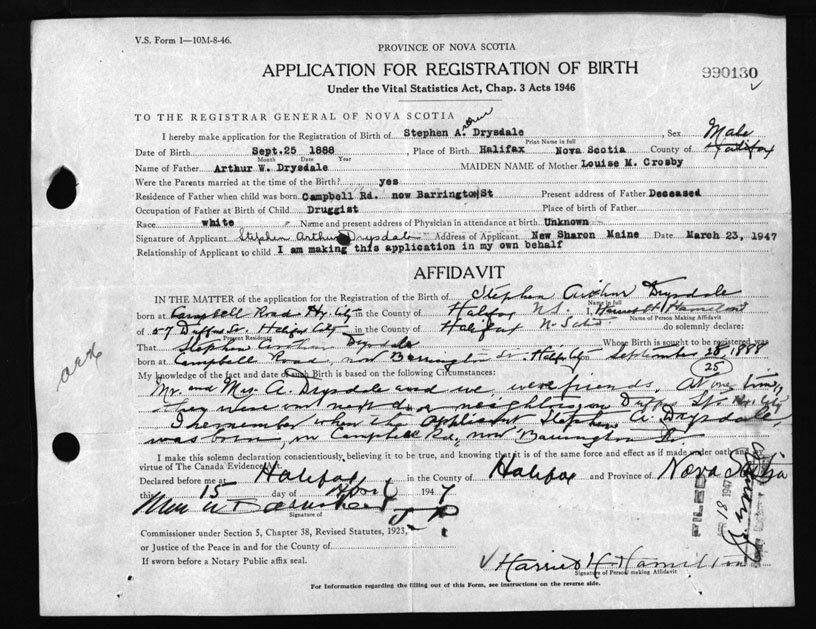 V.S. Form 1—10M-8-46.
PROVINCE OF NOVA SCOTIA
APPLICATION FOR REGISTRATION OF BIRTH
990130
Under the Vital Statistics Act, Chap. 3 Acts 1946
TO THE REGISTRAR GENERAL OF NOVA SCOTIA
I hereby make application for the Registration of Birth of Stephen A. Drysdale, Sex Male
Print Name in full
Date of Birth Sept. 25 1888, Place of Birth Halifax Nova Scotia County of Halifax
Month Date Year
Name of Father Arthur W. Drysdale MAIDEN NAME of Mother Louise M. Crosby
Were the Parents married at the time of the Birth? yes
Residence of Father when child was born Campbell Rd. now Barrington St Present address of Father Deceased
Occupation of Father at Birth of Child Druggist Place of birth of Father
Race white Name and present address of Physician in attendance at birth Unknown
Signature of Applicant Stephen Arthur Drysdale Address of Applicant New Sharon Maine Date March 23, 1947
Relationship of Applicant to child I am making this application in my own behalf
AFFIDAVIT
IN THE MATTER of the application for the Registration of the Birth of Stephen Arthur Drysdale
Name in full
born at Campbell Road Hx. City in the County of Halifax N.S. I, Harriet H. Hamilton
Name of Person Making Affidavit
of 57 Duffus St. Halifax City in the County of Halifax N. Sco. do solemnly declare:
Present Residence
That Stephen Arthur Drysdale Whose Birth is sought to be registered was
born at Campbell Road, now Barrington St. Halifax City September 25 1888
(25)
My knowledge of the fact and date of such Birth is based on the following Circumstances:
Mr. and Mrs. A. Drysdale and we, were friends. At one time,
they were our next door neighbors on Duffus St. Hx. City
I remember when the applicant Stephen A. Drysdale,
was born, on Campbell Rd., now Barrington St.
I make this solemn declaration conscientiously believing it to be true, and knowing that it is of the same force and effect as if made under oath and
virtue of The Canada Evidence Act.
Declared before me at Halifax in the County of Halifax and Province of Nova Scotia
this 15 day of April 1947
J P
Signature of
Commissioner under Section 5, Chapter 38, Revised Statutes, 1923,
or Justice of the Peace in and for the County of
If sworn before a Notary Public affix seal.
FILED
18 1947
Harriet H. Hamilton
Signature of Person making Affidavit
For Information regarding the filling out of this Form, see instructions on the reverse side.